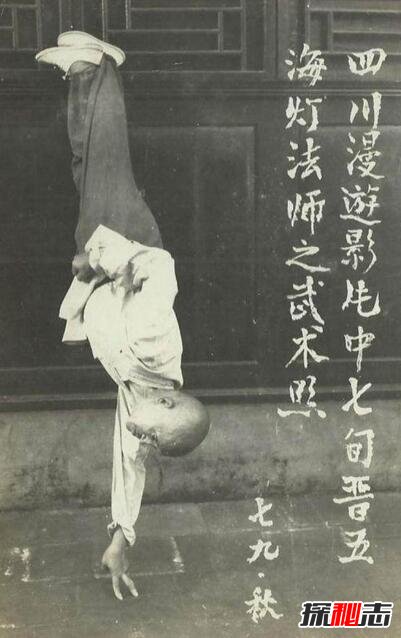 四川漫遊影片中七旬晋五
海灯法师之武术照
七九·秋
探秘志